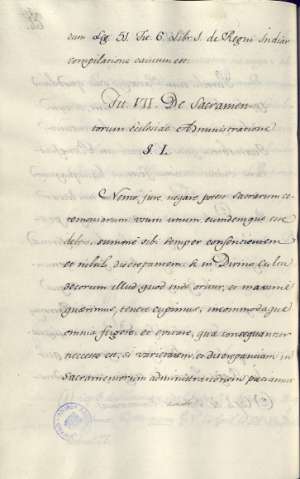 cum Leg. 51. Tit. 6. Libr. I. de Regni Indiar.
compilatione cautum est.
Tit. VII. De Sacramen
torum Ecclesiae Administratione
§. I.
Nemo jure negare potest Sacrarum ce
remoniarum usum unum eundemque esse
debere, summe sibi semper consencientem
et nihil discrepantem & in Divino Cultu
decorum illud quod inde oritur, et maxime
quaerimus, tenere cupimus, incommodaque
omnia fugere, et epurare, quae consequantur
necesse est, si varietatem, et discrepantiam in
Sacramentorum administrationem